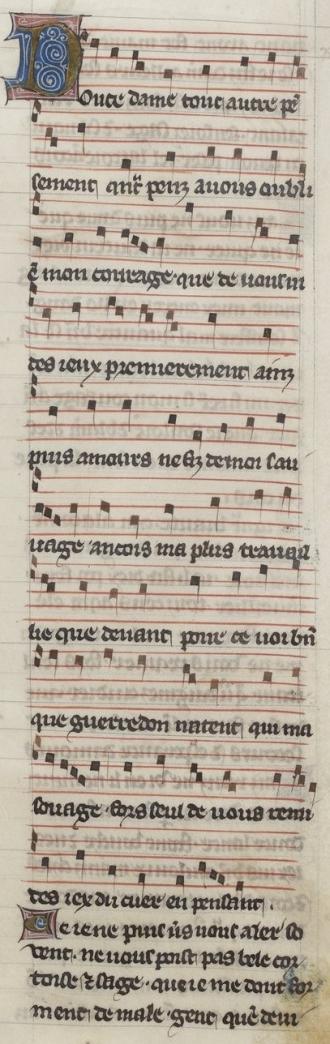 Douce dame tout autre pē
sement qñt penz a uous oubli
ē mon courage que de uous ui
des ieux premierement ainz
puis amours ne fu de moi sau
uage ancois ma plus trauail
lie que deuant pour ce uoi bñ
que guerredon natent qui ma
souage fors seul de uous remi
des iex du cuer en pensant.
Se ie ne puis ūs uous aler so
uent. ne uous poist pas bele cor
toise ⁊ sage. que ie me dout for
ment de male gent que deui